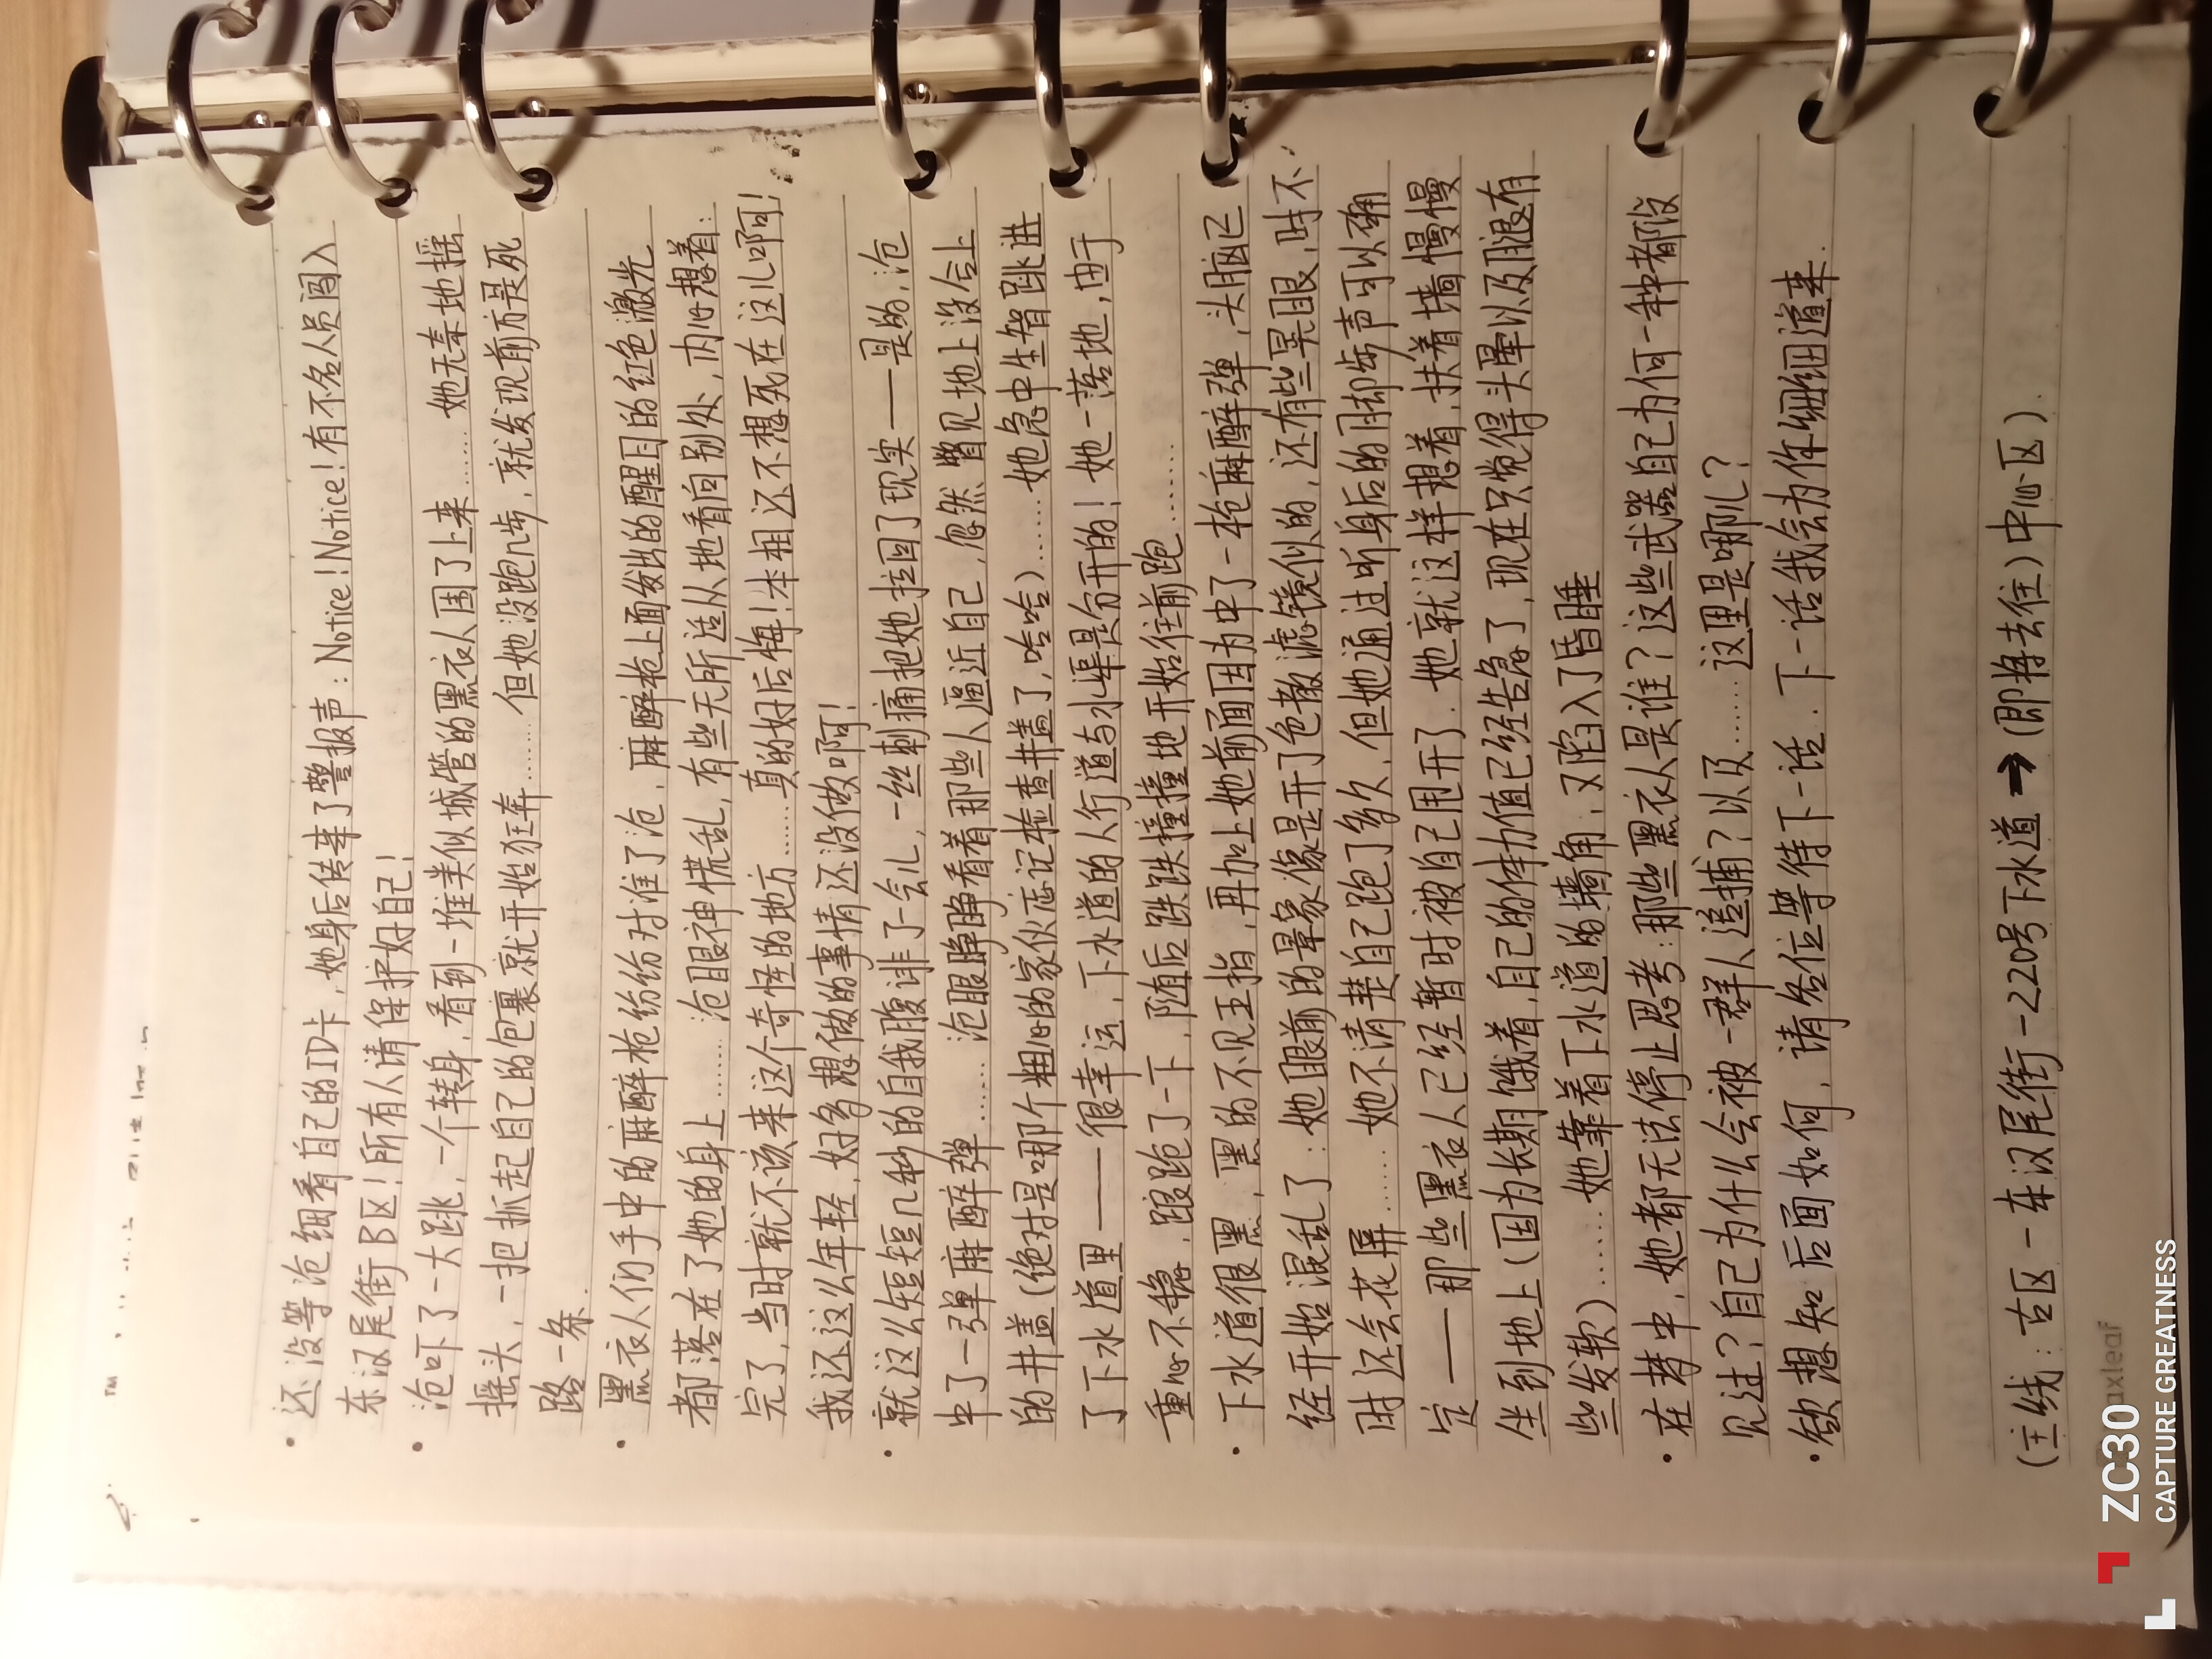 还没等沧细看自己的ID卡,她身后传来了警报声:Notice!Notice!有不名人员闯入
东汉尾街B区!所有人请保护好自己!
沧吓了一大跳,一个转身,看到一堆类似城管的黑衣人围了上来……她无奈地摇
摇头,一把抓起自己的包裹就开始狂奔……但她没跑几步,就发现前方是死
路一条.
黑衣人们手中的麻醉枪纷纷对准了沧,麻醉枪上面发出的醒目的红色激光
都落在了她的身上……沧眼神慌乱,有些无所适从地看向别处,内心想着:
完了,当时就不该来这个奇怪的地方……真的好后悔!本相还不想死在这儿啊!
我还这么年轻,好多想做的事情还没做啊!
就这么短短几秒的自我腹诽了一会儿,一丝刺痛把她拉回了现实——是的,沧
中了一弹麻醉弹……沧眼睁睁看着那些人逼近自己,忽然瞥见地上没合上
的井盖(绝对是哪个粗心的家伙忘记检查井盖了,哈哈)……她急中生智跳进
了下水道里——很幸运,下水道的人行道与水渠是分开的!她一落地,由于
重心不稳,踉跄了一下,随后跌跌撞撞地开始往前跑……
下水道很黑,黑的不见五指,再加上她前面因为中了一枪麻醉弹,头脑已
经开始混乱了:她眼前的景象像是开了色散滤镜似的,还有些晃眼,时不
时还会花屏……她不清楚自己跑了多久,但她通过听身后的脚步声可以确
定——那些黑衣人已经暂时被自己甩开了.她就这样想着,扶着墙慢慢
坐到地上(因为长期饿着,自己的体力值已经告急了,现在只觉得头晕以及腿有
些发软)……她靠着下水道的墙角,又陷入了昏睡
在梦中,她都无法停止思考:那些黑衣人是谁?这些武器自己为何一种都没
见过?自己为什么会被一群人追捕?以及……这里是哪儿?
欲想知后面如何,请各位等待下一话.下一话我会为你细细道来.
(主线:古区-东汉尾街-220号下水道➡(即将去往)中心区).
auxleaf
ZC30
CAPTURE GREATNESS